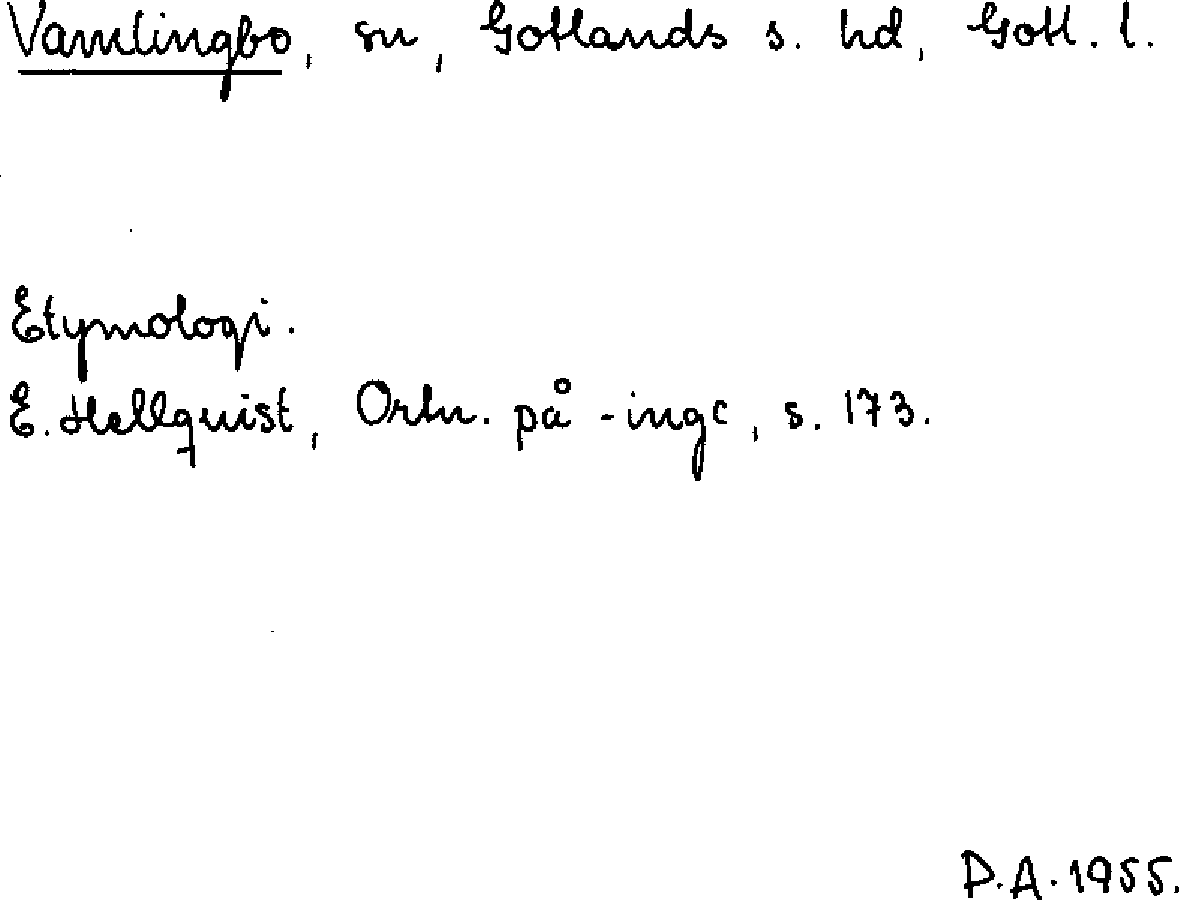 Vamlingbo, sn, Gotlands s. hd, Gotl. l.
Etymologi.
E. Hellquist, Ortn. på -inge, s. 173.
P.A. 1955.